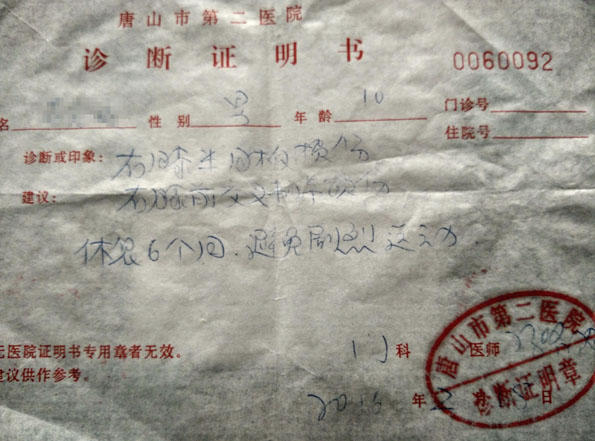 唐山市第二医院
诊断证明书
0060092
名 性别 男 年龄 10 门诊号
住院号
诊断或印象: 右膝半月板损伤
建议: 右膝前交叉韧带损伤
休息6个月.避免剧烈运动.
无医院证明书专用章者无效。
建议供作参考。
门科 医师
年 日
唐山市第二医院
诊断证明章